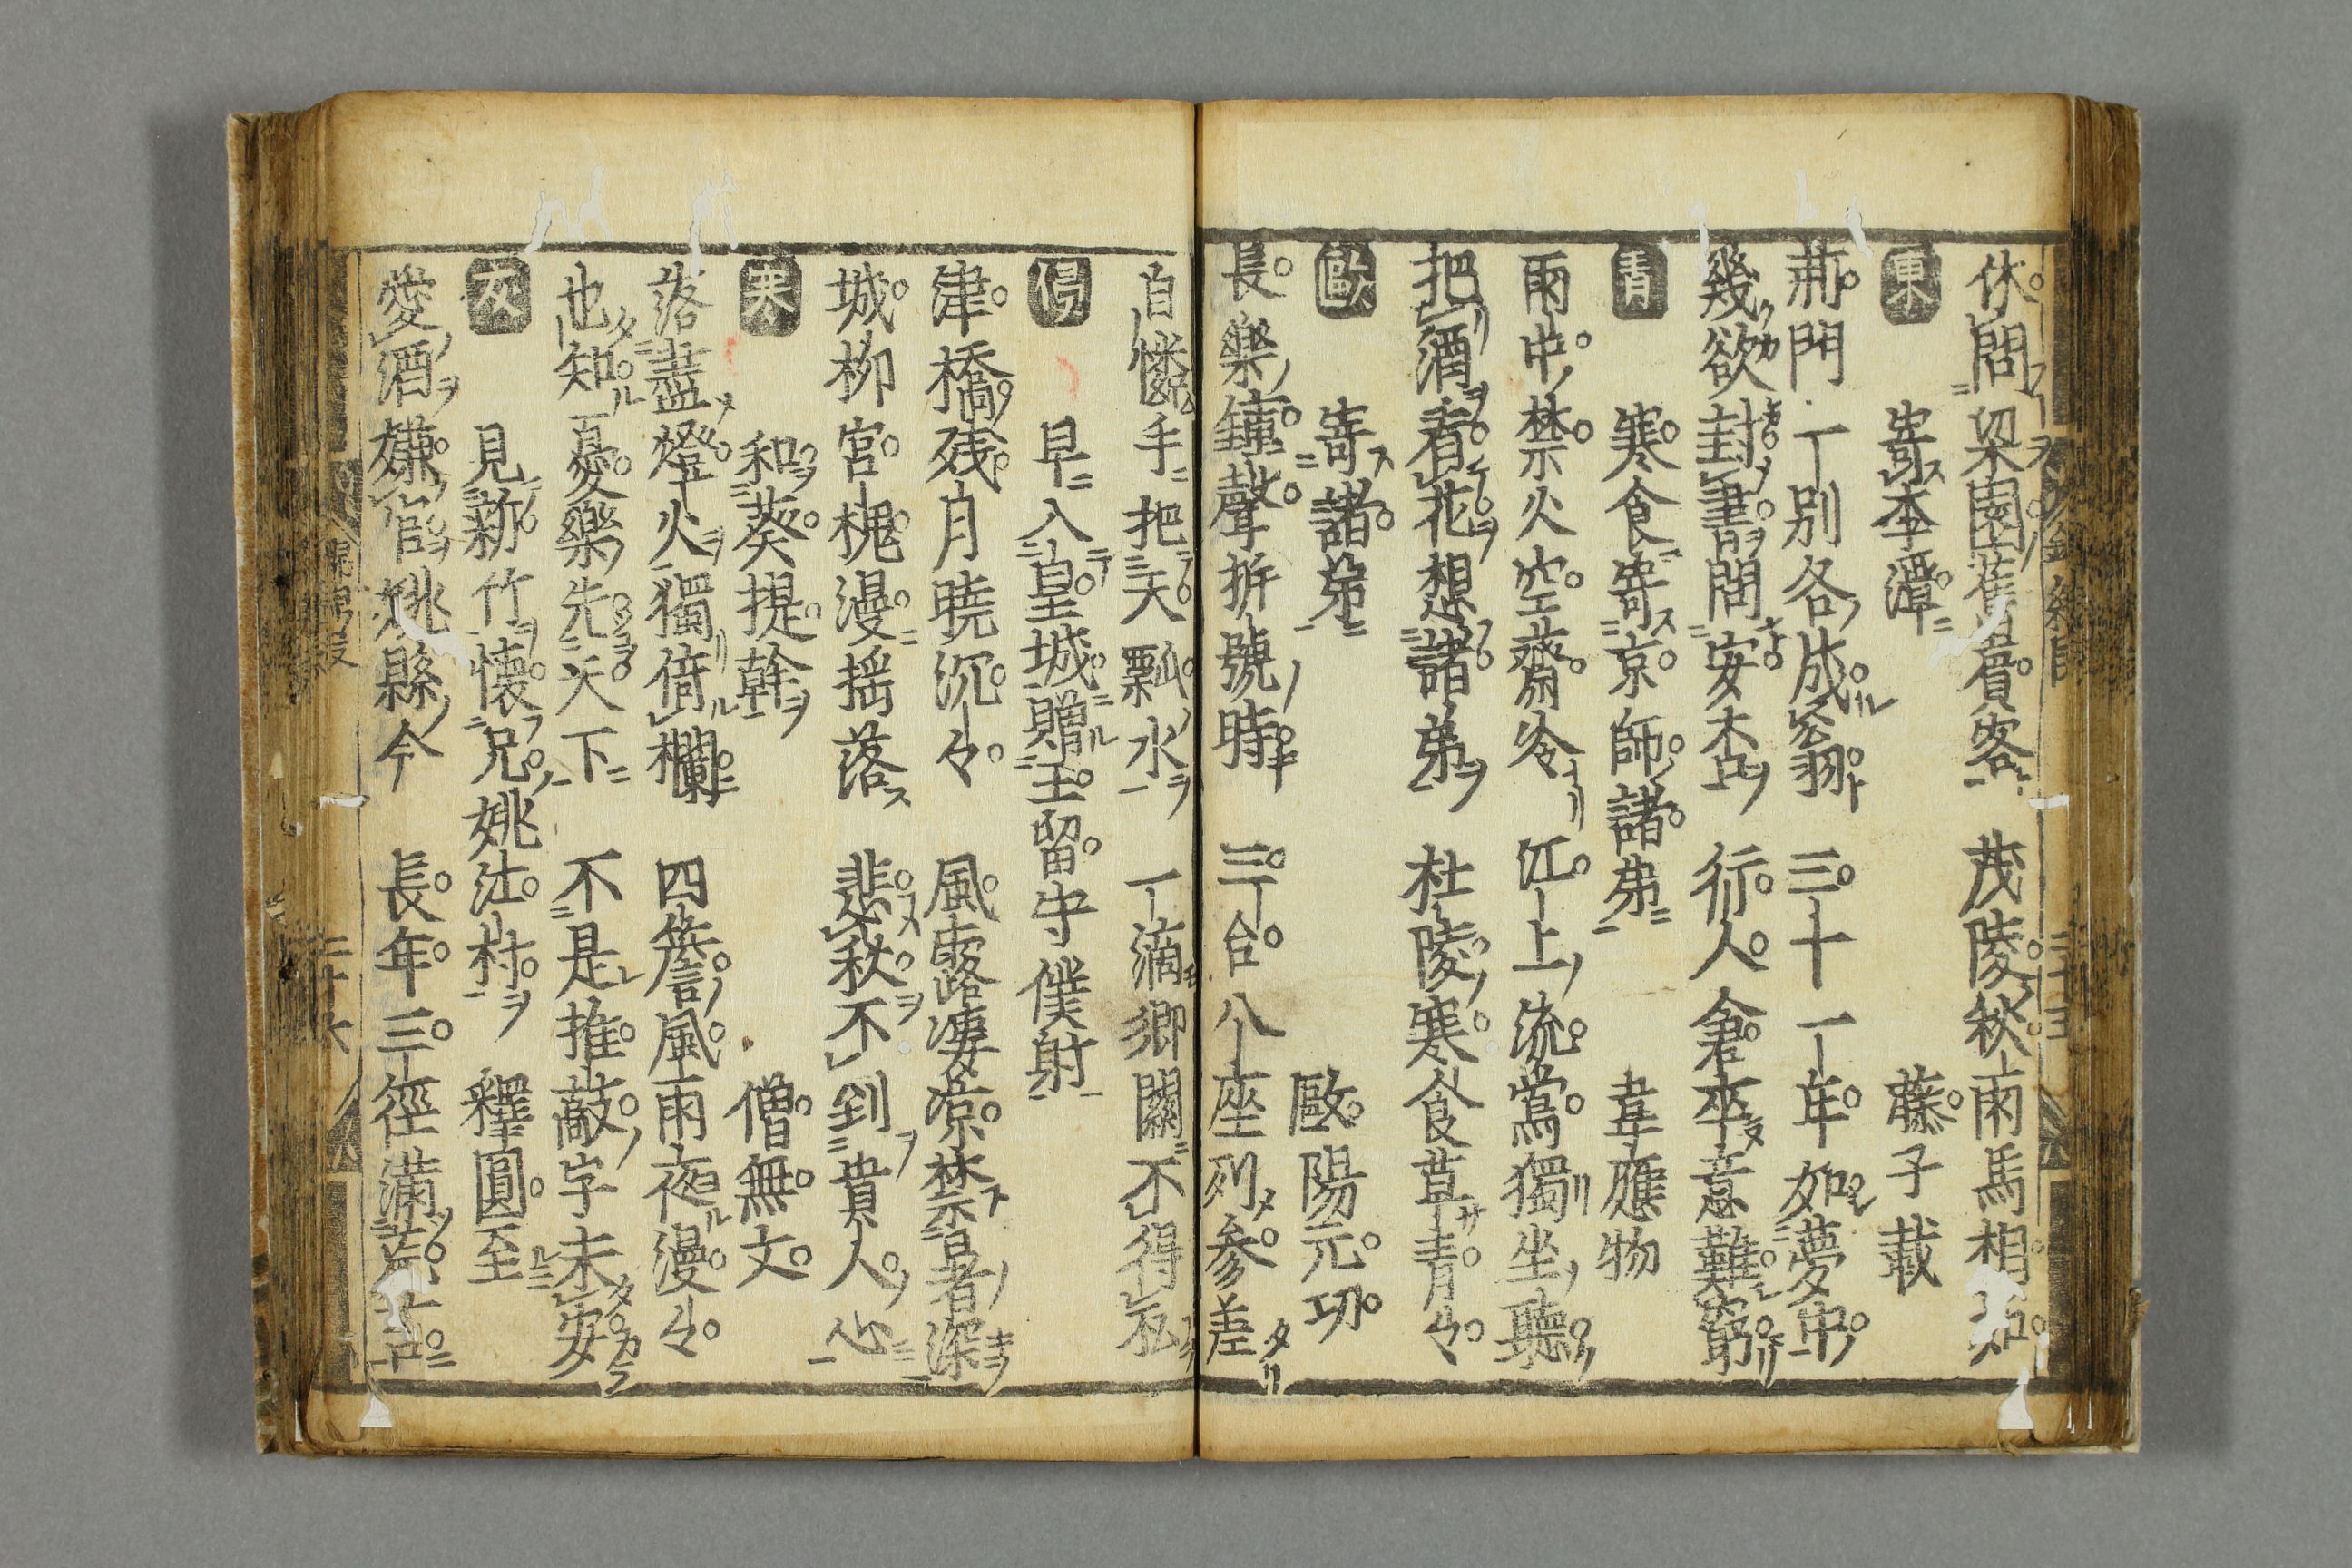 休問梁園舊賓客 茂陵秋雨馬相如
東 寄李潭 藤子載
薊門一別各成翁 三十一年如夢中
幾欲封書問安否 行人倉卒意難窮
青 寒食寄京師諸弟 韋應物
雨中禁火空齋冷 江上流鶯獨坐聽
把酒看花想諸弟 杜陵寒食草青々
歐 寄諸弟 歐陽元功
長樂鐘聲拆號時 三台八座列參差
自憐手把天瓢水 一滴鄉關不得私
侵 早入皇城贈王留守僕射
津橋殘月曉沉々 風露凄凉禁署深
城柳宮槐漫揺落 悲秋不到貴人心
寒 和蔡提幹 僧無文
落盡燈火獨倚欄 四簷風雨夜漫々
也知憂樂先天下 不是推敲字未安
灰 見新竹懐兄姚江村 釋圓至
愛酒嫌官姚縣令 長年三徑滿蒼苔